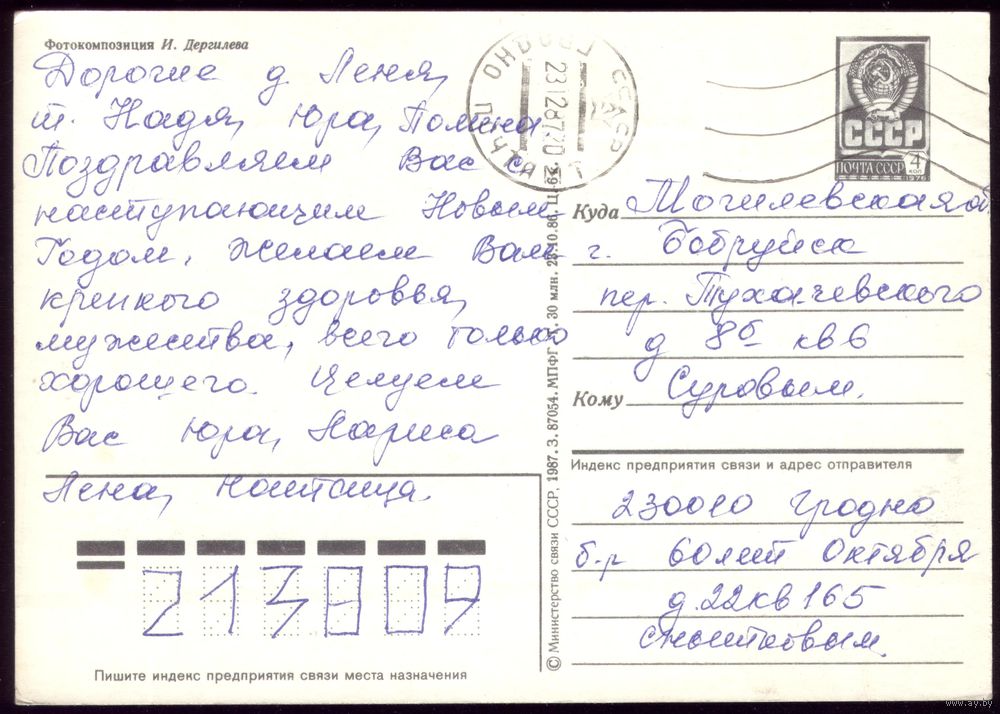 Фотокомпозиция И. Дергилева
Дорогие д. Леня,
т. Надя, Юра, Полина
Поздравляем Вас с
наступающим Новым
Годом. Желаем Вам
крепкого здоровья,
мужества, всего только
хорошего. Целуем
Вас Юра, Лариса
Лена, Наташа.
213809
Пишите индекс предприятия связи места назначения
© Министерство связи СССР, 1987. З. 87054. МПФГ. 30 млн. 28.10.86. Ц.
ГРОДНО
ПОЧТАМТ
СССР
ПОЧТА СССР
4 коп
1976
Куда Могилевская об
г. Бобруйск
пер. Тухачевского
д 8б кв 6
Кому Суровым.
Индекс предприятия связи и адрес отправителя
230010 Гродно
б-р 60 лет Октября
д. 22 кв 165
www.ay.by